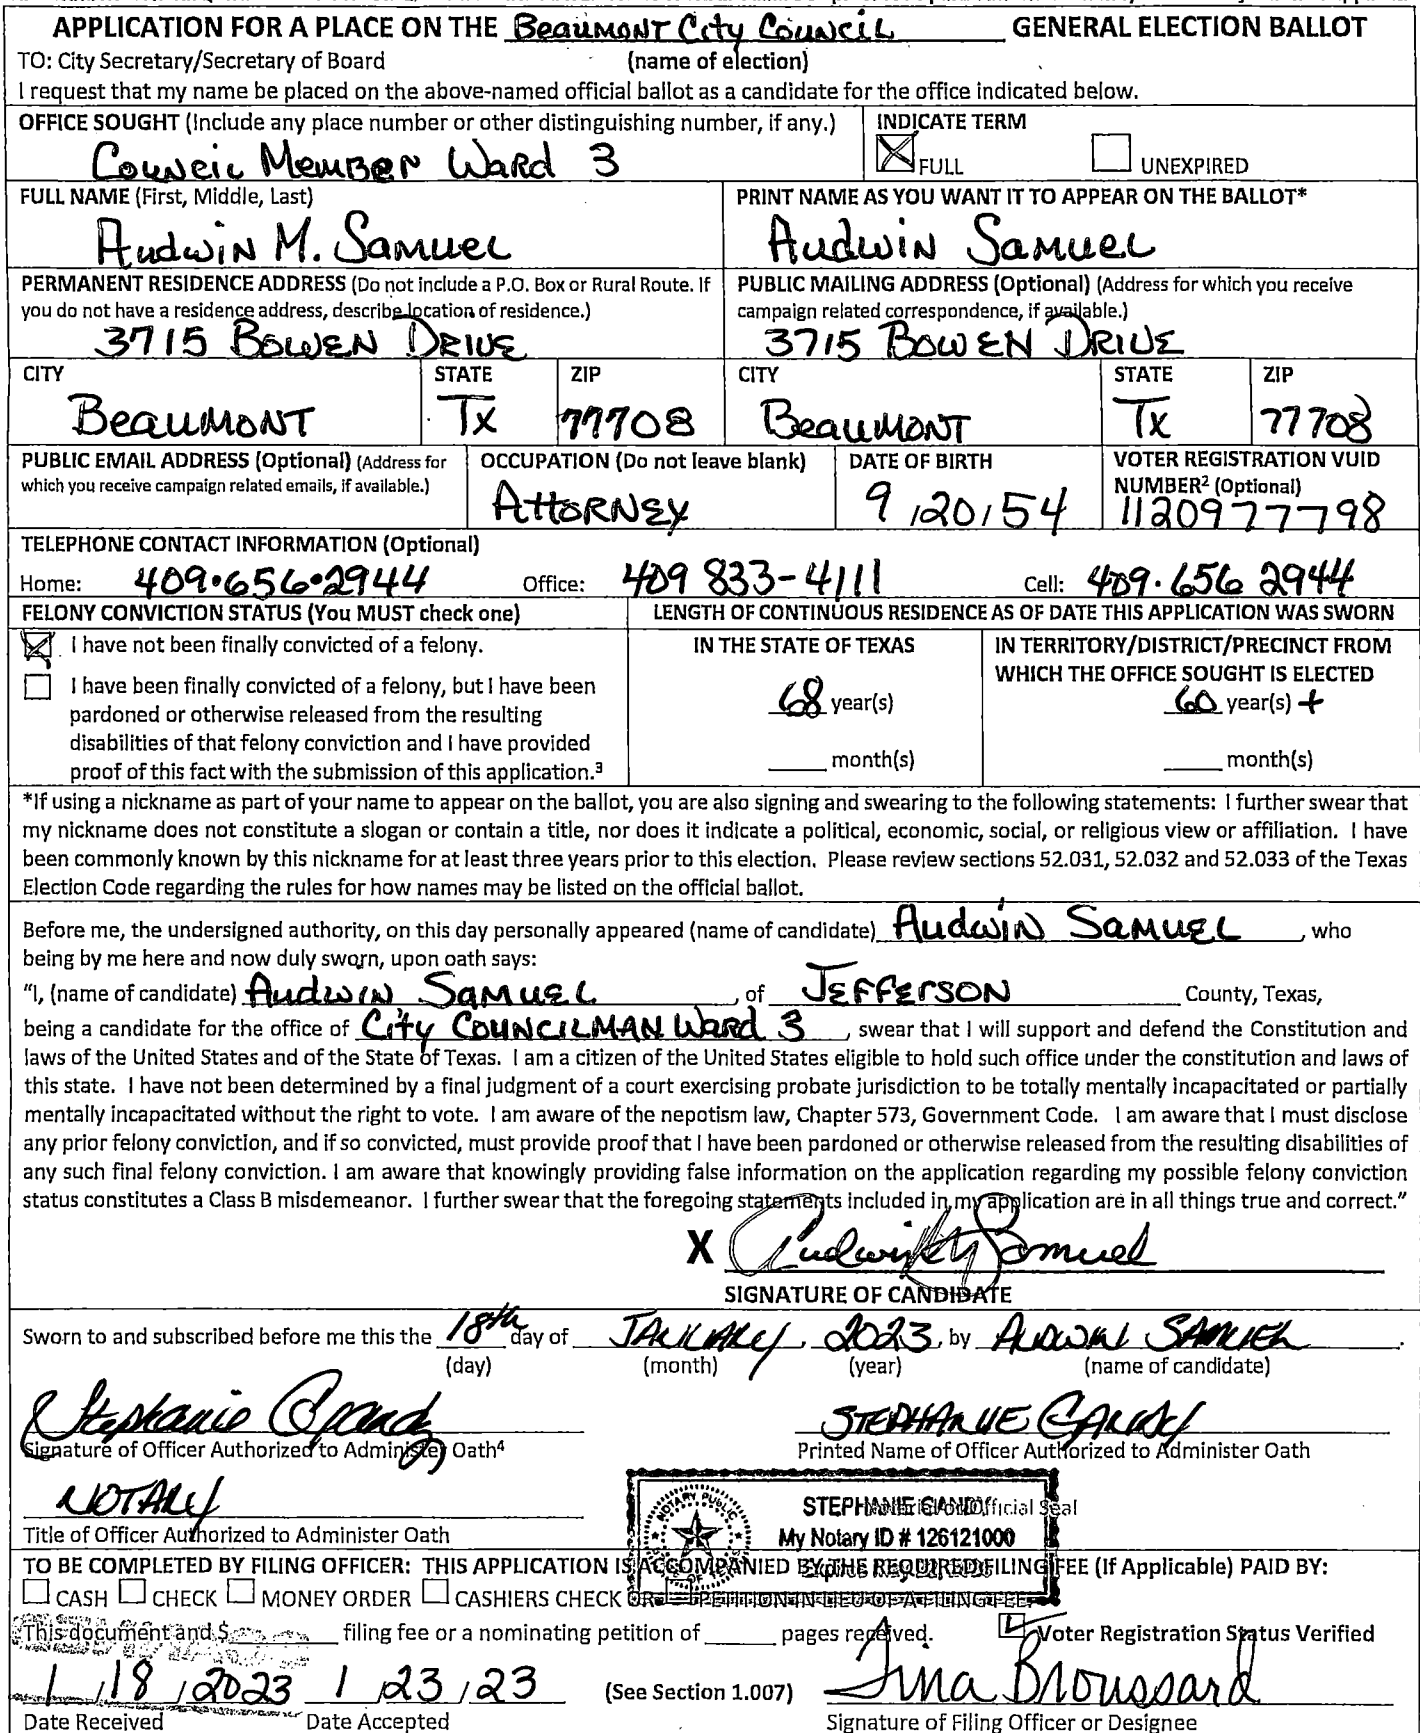 APPLICATION FOR A PLACE ON THE Beaumont City Council GENERAL ELECTION BALLOT
TO: City Secretary/Secretary of Board (name of election)
I request that my name be placed on the above-named official ballot as a candidate for the office indicated below.
OFFICE SOUGHT (Include any place number or other distinguishing number, if any.) INDICATE TERM
Council Member Ward 3 FULL UNEXPIRED
FULL NAME (First, Middle, Last) PRINT NAME AS YOU WANT IT TO APPEAR ON THE BALLOT*
Audwin M. Samuel Audwin Samuel
PERMANENT RESIDENCE ADDRESS (Do not include a P.O. Box or Rural Route. If you do not have a residence address, describe location of residence.) PUBLIC MAILING ADDRESS (Optional) (Address for which you receive campaign related correspondence, if available.)
3715 Bowen Drive 3715 Bowen Drive
CITY STATE ZIP CITY STATE ZIP
Beaumont Tx 77708 Beaumont Tx 77708
PUBLIC EMAIL ADDRESS (Optional) (Address for which you receive campaign related emails, if available.) OCCUPATION (Do not leave blank) DATE OF BIRTH VOTER REGISTRATION VUID NUMBER² (Optional)
Attorney 9/20/54 1120977798
TELEPHONE CONTACT INFORMATION (Optional)
Home: 409.656.2944 Office: 409 833-4111 Cell: 409.656 2944
FELONY CONVICTION STATUS (You MUST check one) LENGTH OF CONTINUOUS RESIDENCE AS OF DATE THIS APPLICATION WAS SWORN
I have not been finally convicted of a felony. IN THE STATE OF TEXAS IN TERRITORY/DISTRICT/PRECINCT FROM WHICH THE OFFICE SOUGHT IS ELECTED
I have been finally convicted of a felony, but I have been pardoned or otherwise released from the resulting disabilities of that felony conviction and I have provided proof of this fact with the submission of this application.³
68 year(s) 60 year(s) +
month(s) month(s)
*If using a nickname as part of your name to appear on the ballot, you are also signing and swearing to the following statements: I further swear that
my nickname does not constitute a slogan or contain a title, nor does it indicate a political, economic, social, or religious view or affiliation. I have
been commonly known by this nickname for at least three years prior to this election. Please review sections 52.031, 52.032 and 52.033 of the Texas
Election Code regarding the rules for how names may be listed on the official ballot.
Before me, the undersigned authority, on this day personally appeared (name of candidate) Audwin Samuel, who
being by me here and now duly sworn, upon oath says:
"I, (name of candidate) Audwin Samuel, of Jefferson County, Texas,
being a candidate for the office of City Councilman Ward 3, swear that I will support and defend the Constitution and
laws of the United States and of the State of Texas. I am a citizen of the United States eligible to hold such office under the constitution and laws of
this state. I have not been determined by a final judgment of a court exercising probate jurisdiction to be totally mentally incapacitated or partially
mentally incapacitated without the right to vote. I am aware of the nepotism law, Chapter 573, Government Code. I am aware that I must disclose
any prior felony conviction, and if so convicted, must provide proof that I have been pardoned or otherwise released from the resulting disabilities of
any such final felony conviction. I am aware that knowingly providing false information on the application regarding my possible felony conviction
status constitutes a Class B misdemeanor. I further swear that the foregoing statements included in my application are in all things true and correct."
X Audwin M Samuel
SIGNATURE OF CANDIDATE
Sworn to and subscribed before me this the 18th day of January, 2023, by Audwin Samuel.
(day) (month) (year) (name of candidate)
Stephanie Gandy STEPHANIE GANDY
Signature of Officer Authorized to Administer Oath⁴ Printed Name of Officer Authorized to Administer Oath
NOTARY STEPHANIE GANDY Official Seal
Title of Officer Authorized to Administer Oath NOTARY PUBLIC My Notary ID # 126121000
TO BE COMPLETED BY FILING OFFICER: THIS APPLICATION IS ACCOMPANIED BY THE REQUIRED FILING FEE (If Applicable) PAID BY:
CASH CHECK MONEY ORDER CASHIERS CHECK OR PETITION IN LIEU OF A FILING FEE.
This document and $ filing fee or a nominating petition of pages received. Voter Registration Status Verified
1/18/2023 1/23/23 (See Section 1.007) Tina Broussard
Date Received Date Accepted Signature of Filing Officer or Designee